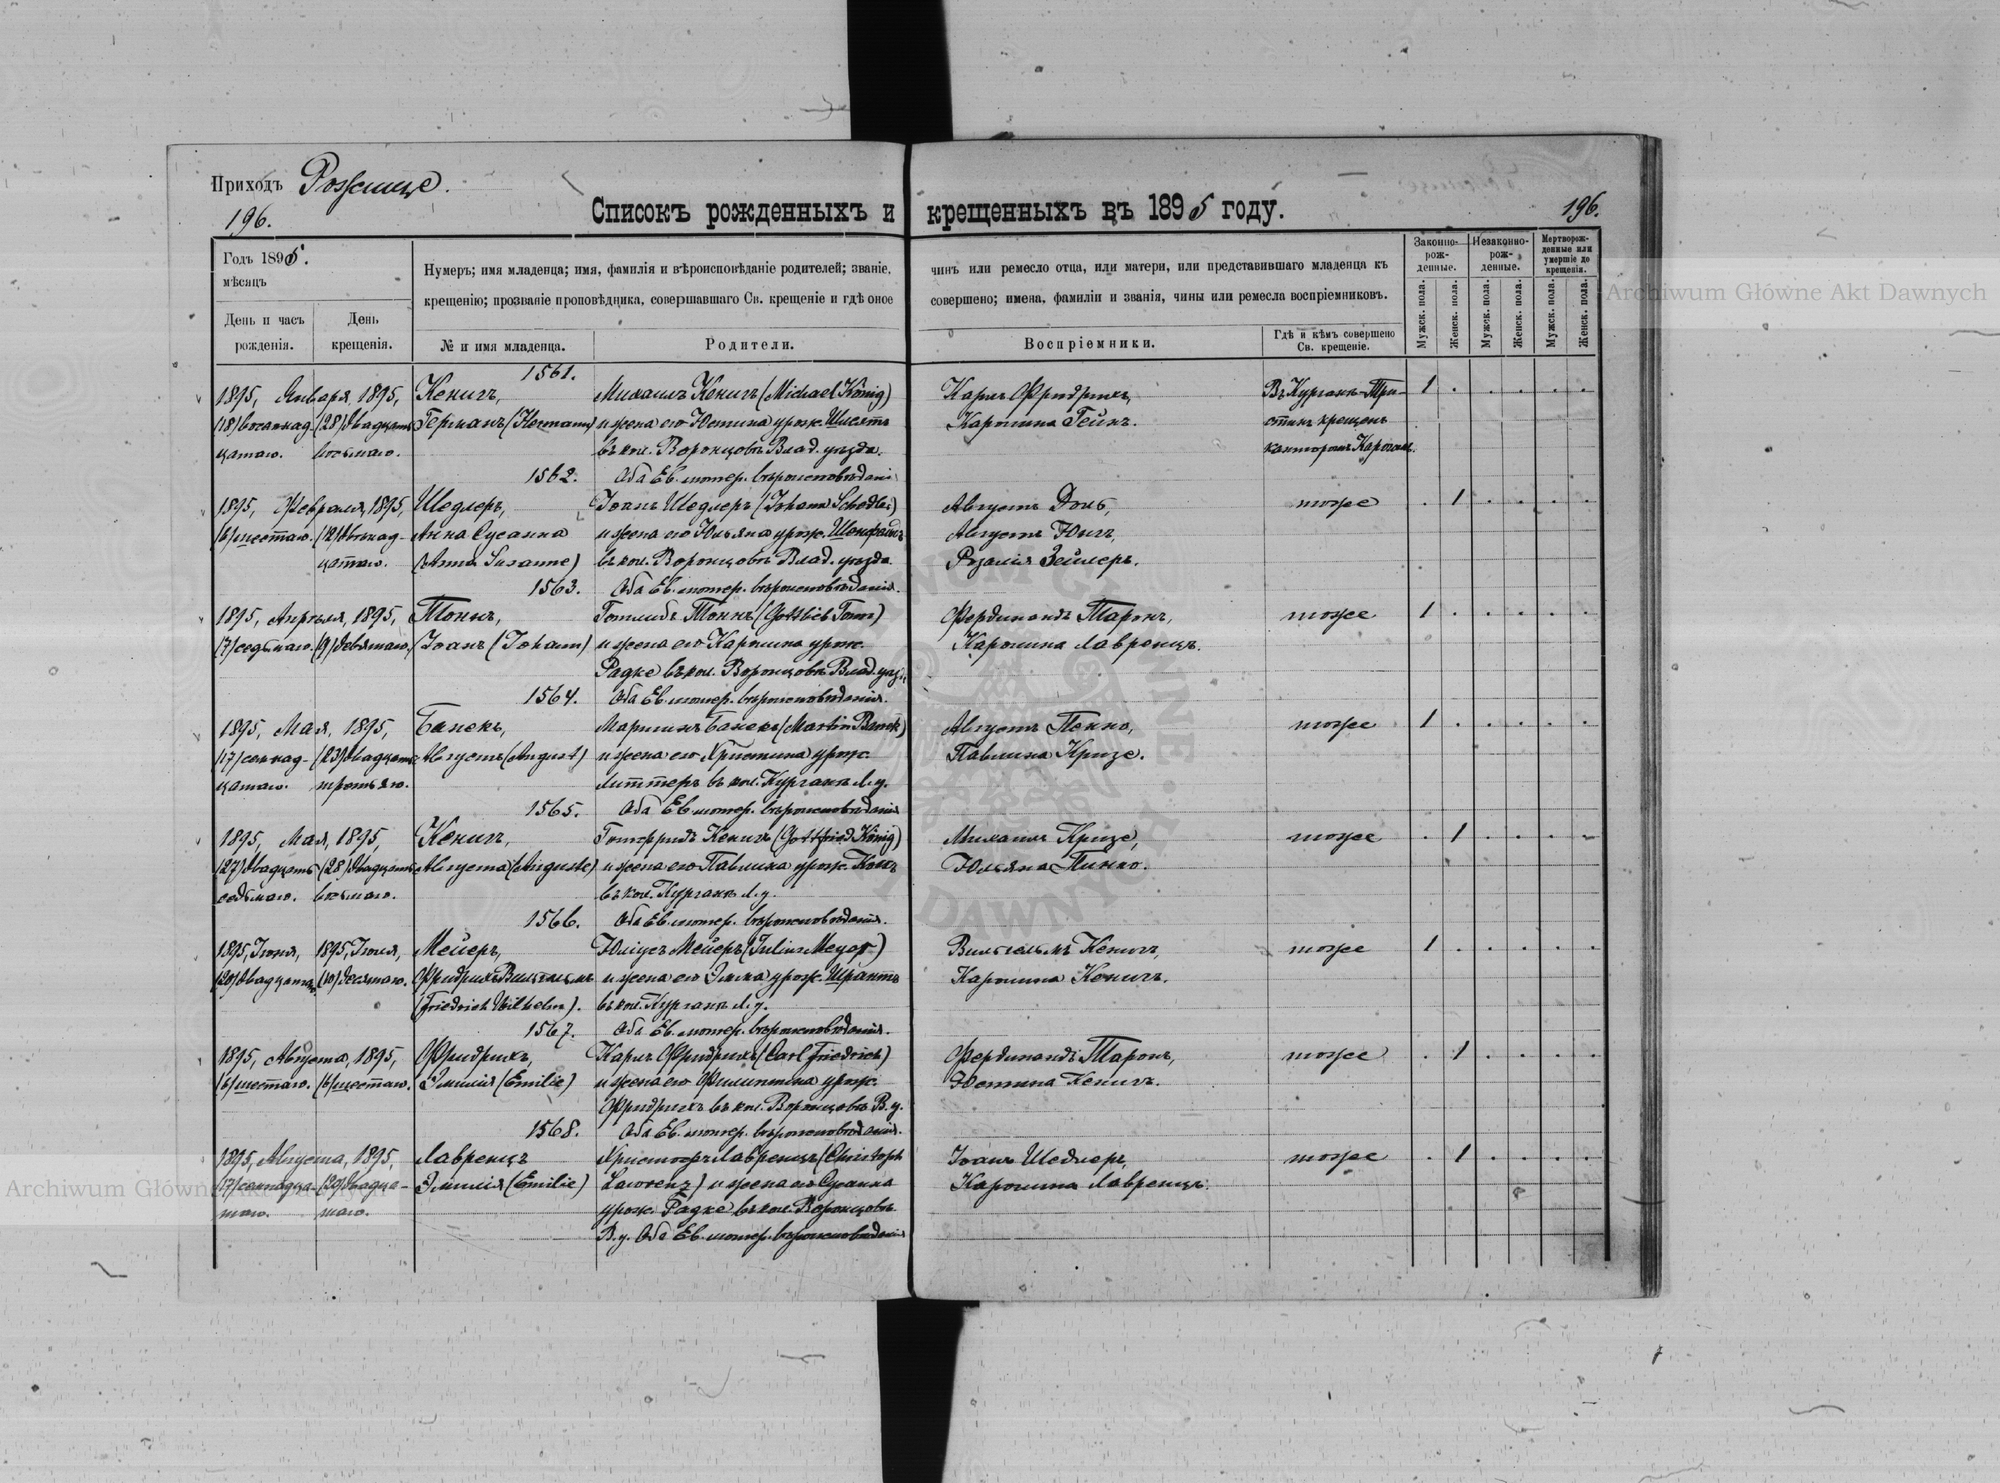 Приходъ Рожище.
196.
Списокъ рожденныхъ и крещенныхъ въ 1895 году.
196.
Годъ 1895.
мѣсяцъ
День и часъ рожденія.
День крещенія.
Нумеръ; имя младенца; имя, фамилія и вѣроисповѣданіе родителей; званіе,
чинъ или ремесло отца, или матери, или представившаго младенца къ
крещенію; прозваніе проповѣдника, совершавшаго Св. крещеніе и гдѣ оное
совершено; имена, фамиліи и званія, чины или ремесла воспріемниковъ.
№ и имя младенца.
Родители.
Воспріемники.
Гдѣ и кѣмъ совершено Св. крещеніе.
Законно-рож-денные.
Незаконно-рож-денные.
Мертворож-денные или умершіе до крещенія.
Мужск. пола.
Женск. пола.
Мужск. пола.
Женск. пола.
Мужск. пола.
Женск. пола.
Archiwum Główne Akt Dawnych
1561.
1895, Января, 1895, Кенигъ, Михаилъ Кенигъ (Michael König) Карлъ Фридрихъ, Въ Курганъ- 1
(18) восемнад- (28) двадцать Германъ (Hermann) и жена его Юстина урож. Каролина Гейн. крещенъ
цатаго. восьмаго. въ кол. Воронцовъ Влад. уѣзда. канторомъ
1562. Оба Ев. лютер. вѣроисповѣданія
1895, Февраля, 1895, Шедлеръ, Іоанъ Шедлеръ (Johann Schedler) Августъ тоже 1
(6) шестаго. (12) двѣнад- Анна Сусанна и жена его Юльяна урож. Августъ
цатаго. (Anna Susanne) въ кол. Воронцовъ Влад. уѣзда Розалія Зейлеръ.
1563. Оба Ев. лютер. вѣроисповѣданія.
1895, Апрѣля, 1895, Тоннъ, Готлибъ Тоннъ (Gottlieb Tonn) Фердинандъ тоже 1
(7) седьмаго. (9) девятаго. Іоанъ (Johann) и жена его Каролина урож. Каролина Лавренцъ.
Радке въ кол. Воронцовъ Влад. уѣзд.
1564. Оба Ев. лютер. вѣроисповѣданія.
1895, Мая, 1895, Банекъ, Мартинъ Банекъ (Martin Banek) Августъ тоже 1
(17) семнад- (23) двадцать Августъ (August) и жена его Христина урож. Павлина Кризе.
цатаго. третьяго. Литтеръ въ кол. Курганъ Л. у.
1565. Оба Ев. лютер. вѣроисповѣданія
1895, Мая, 1895, Кенигъ, Готфридъ Кенигъ (Gottfried König) Михаилъ Кризе, тоже 1
(27) двадцать (28) двадцать Августа (Auguste) и жена его Павлина урож. Юльяна Пинко.
седьмаго. восьмаго. въ кол. Курганъ Л. у.
1566. Оба Ев. лютер. вѣроисповѣданія.
1895, Іюня, 1895, Іюля, Мейеръ, Юліусъ Мейеръ (Julius Meyer) Вильгельмъ Кенигъ, тоже 1
(20) двадцатаго. (10) десятаго. Фридрихъ Вильгельмъ и жена его Эмма урож. Каролина Кенигъ.
(Friedrich Wilhelm). въ кол. Курганъ Л. у.
1567. Оба Ев. лютер. вѣроисповѣданія.
1895, Августа, 1895, Фридрихъ, Карлъ Фридрихъ (Carl Friedrich) Фердинандъ тоже 1
(6) шестаго. (6) шестаго. Эмилія (Emilie) и жена его Филипина урож. Юстина Кенигъ.
Фридрихъ въ кол. Воронцовъ В. у.
1568. Оба Ев. лютер. вѣроисповѣданія.
1895, Августа, 1895, Лавренцъ Христофъ Лавренцъ (Christoph Іоанъ Шедлеръ, тоже 1
(17) семнадца- (20) двадца- Эмилія (Emilie) Lawrenz) и жена его Сусанна Каролина Лавренцъ.
таго. таго. урож. Радке въ кол. Воронцовъ
В. у. Оба Ев. лютер. вѣроисповѣданія
Archiwum Główne Akt Dawnych